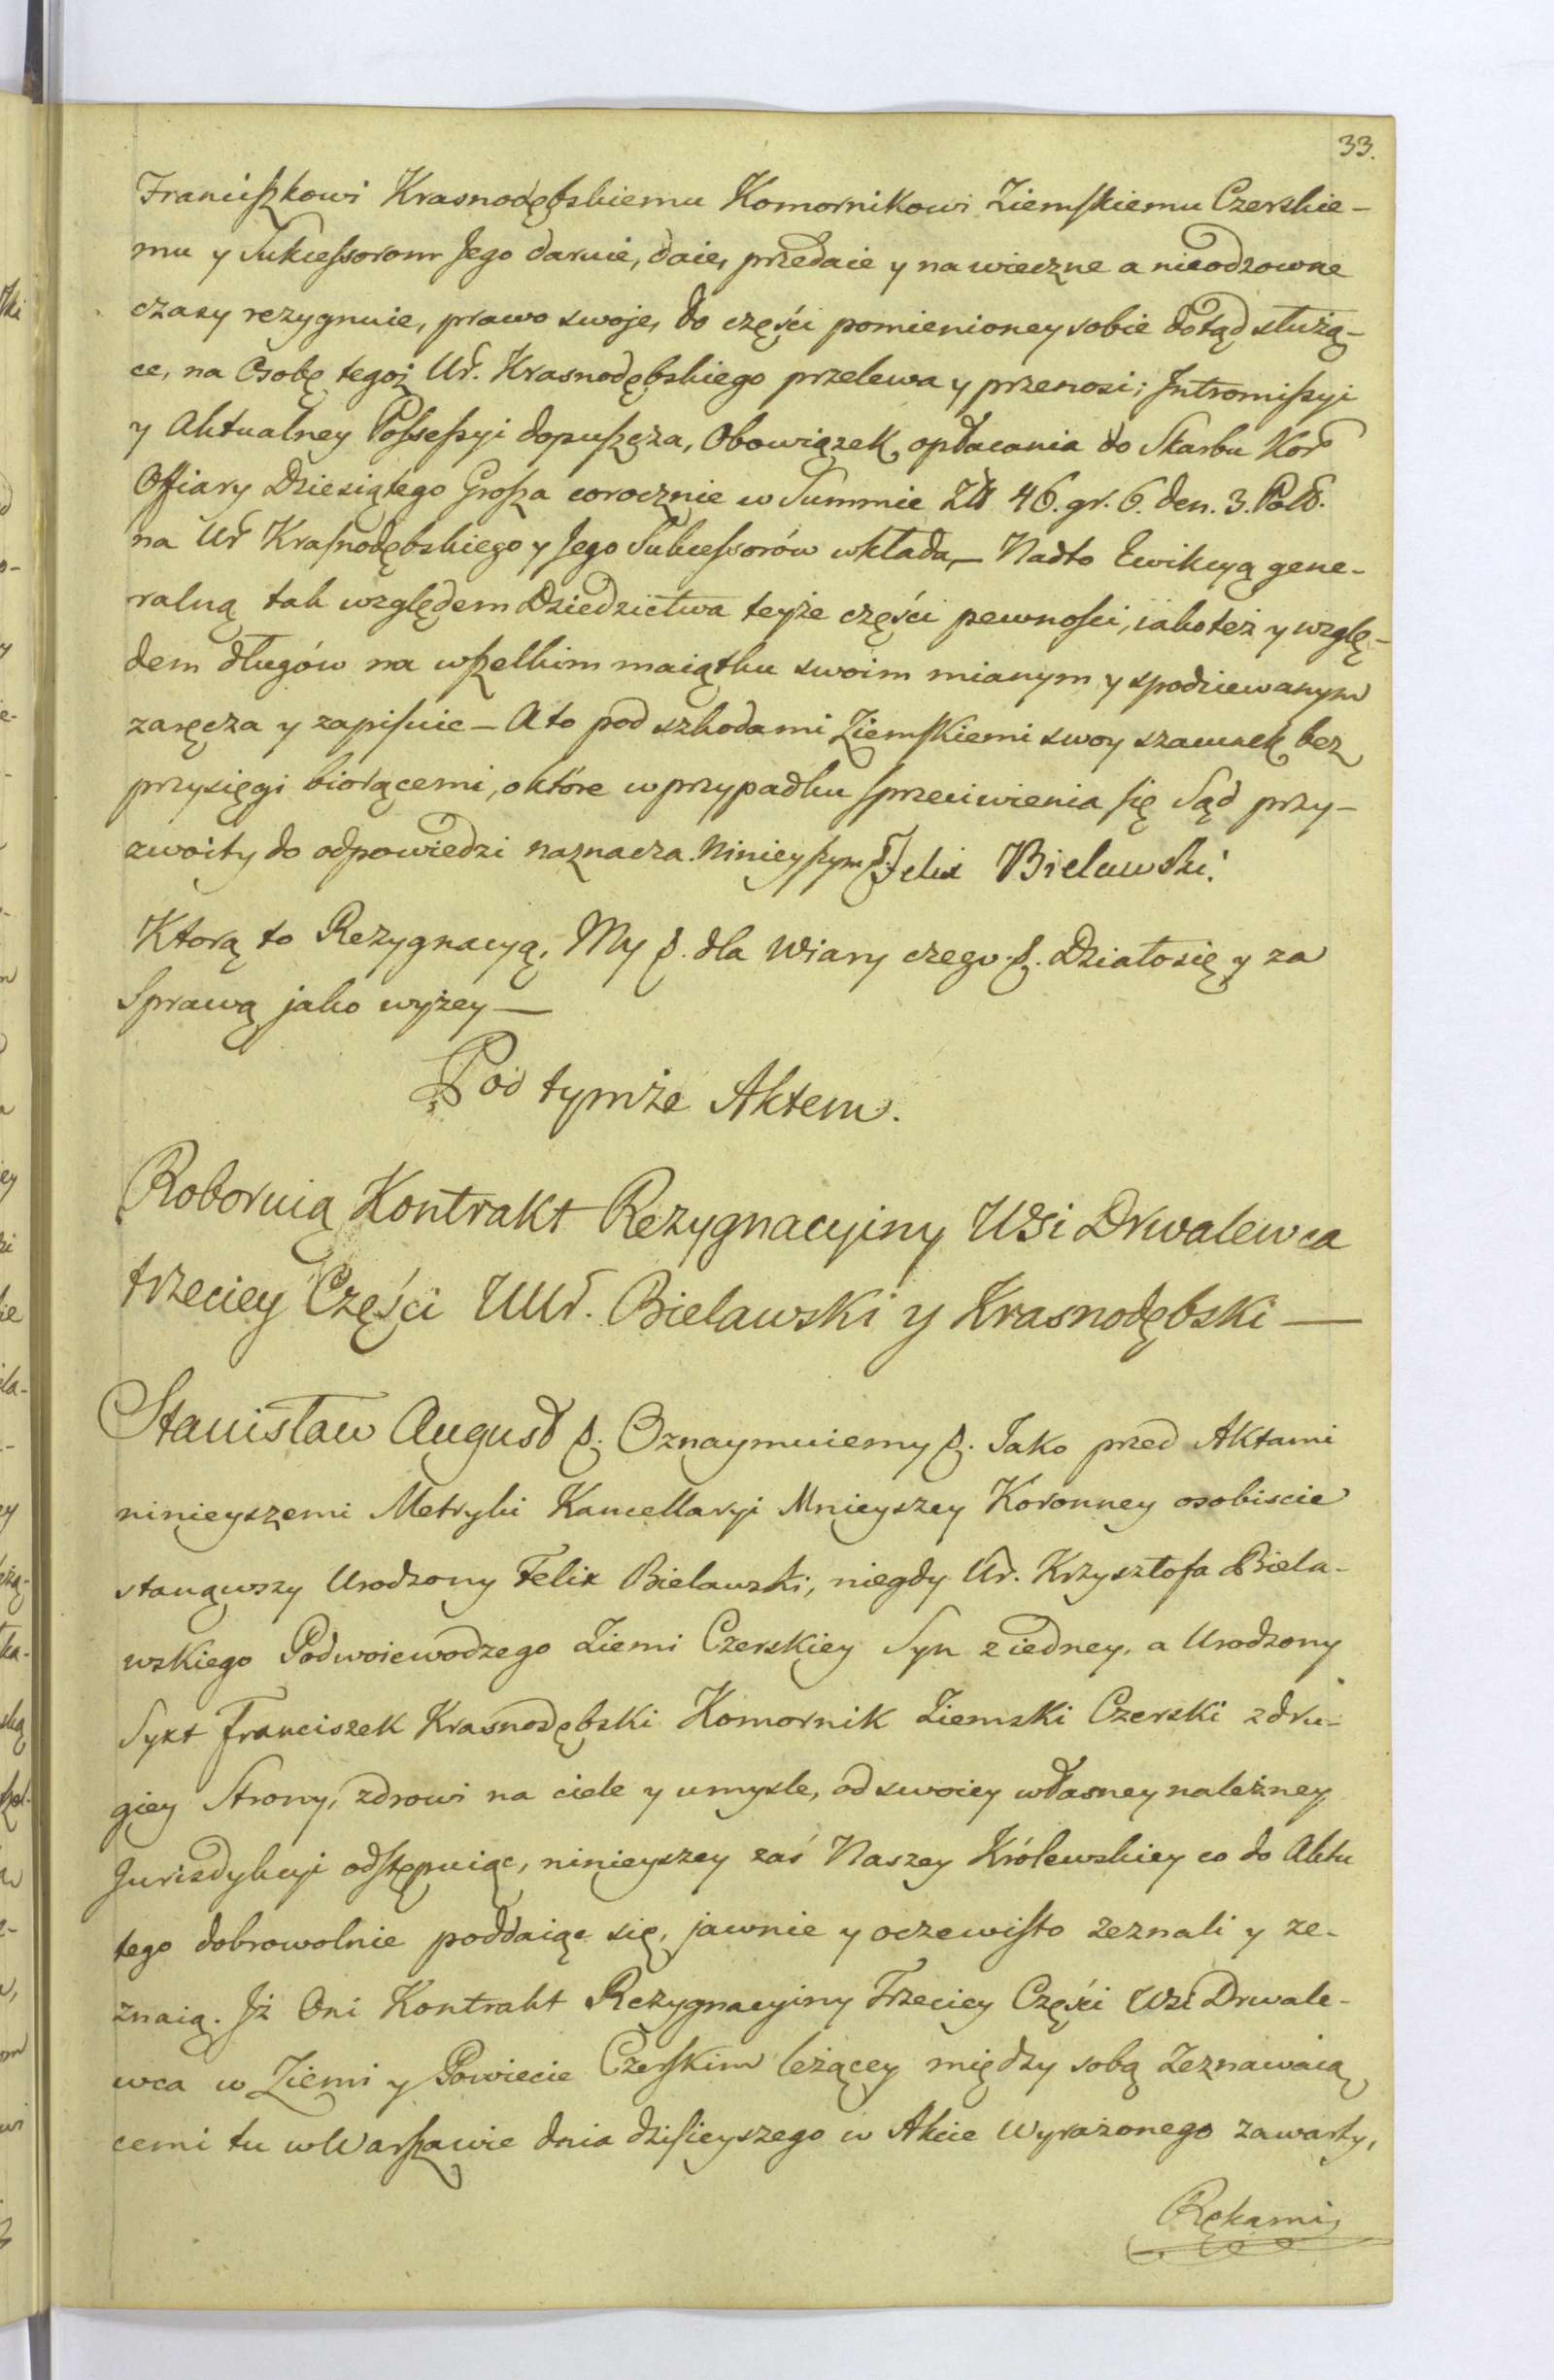 33.
Franciszkowi Krasnodębskiemu Komornikowi Ziemskiemu Czerskie-
mu y Sukcessorom Jego daruie, daie, przedaie y na wieczne a nieodzowne
czasy rezygnuie, prawo swoje, do części pomienioney sobie dotąd służą-
ce, na Osobę tegoż Ur. Krasnodębskiego przelewa y przenosi; Intromissyi
y Aktualney Possessyi dopuszcza, Obowiązek opłacania do Skarbu Kor
Offiary Dziesiątego Grosza corocznie w Summie Zł 46. gr. 6. den. 3. Pol.
na Ur Krasnodębskiego y Jego Sukcessorów wkłada, — Nadto Ewikcyą gene-
ralną tak względem Dziedzictwa teyże części pewności, iako też y wzglę-
dem długów na wszelkim maiątku swoim mianym y spodziewanym
zaręcza y zapisuie — A to pod szkodami Ziemskiemi swoy szacunek bez
przysięgi biorącemi, o które w przypadku sprzeciwienia się Sąd przy-
zwoity do odpowiedzi naznacza. Ninieyszym p. Felix Bielawski.
Ktorą to Rezygnacyą, My p. dla Wiary czego. p. Działo się y za
Sprawą jako wyżey —
Pod tymże Aktem.
Roboruią Kontrakt Rezygnacyiny Wsi Drwalewca
trzeciey Części UUr. Bielawski y Krasnodębski —
Stanisław August p. Oznaymuiemy p. Jako przed Aktami
ninieyszemi Metryki Kancellaryi Mnieyszey Koronney osobiscie
stanąwszy Urodzony Felix Bielawski, niegdy Ur. Krzysztofa Biela-
wskiego Podwoiewodzego Ziemi Czerskiey Syn z iedney, a Urodzony
Syxt Franciszek Krasnodębski Komornik Ziemski Czerski z dru-
giey Strony, zdrowi na ciele y umysle, od swoiey własney należney
Jurisdykcyi odstępuiąc, ninieyszey zaś Naszey Królewskiey co do Aktu
tego dobrowolnie poddaiąc się, jawnie y oczewisto zeznali y ze-
znaią. Jż Oni Kontrakt Rezygnacyiny Trzeciey Części Wsi Drwale-
wca w Ziemi y Powiecie Czerskim leżącey między sobą Zeznawaią
cemi tu w Warszawie dnia dzisieyszego w Akcie Wyrażonego zawarty,
Rękami